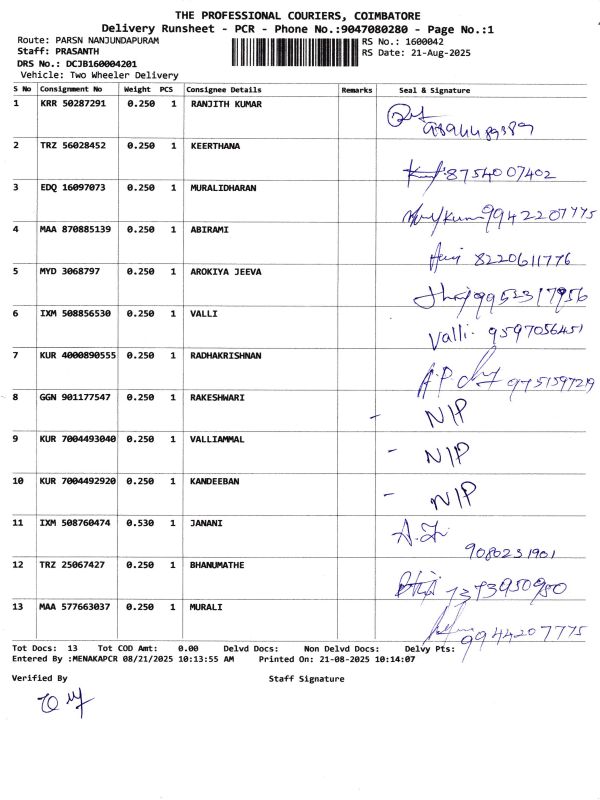 THE PROFESSIONAL COURIERS, COIMBATORE
Delivery Runsheet - PCR - Phone No.:9047080280 - Page No.:1
Route: PARSN NANJUNDAPURAM
RS No.: 1600042
Staff: PRASANTH
RS Date: 21-Aug-2025
DRS No.: DCJB160004201
Vehicle: Two Wheeler Delivery
S No Consignment No Weight PCS Consignee Details Remarks Seal & Signature
1 KRR 50287291 0.250 1 RANJITH KUMAR
2 TRZ 56028452 0.250 1 KEERTHANA
8754007402
3 EDQ 16097073 0.250 1 MURALIDHARAN
9942207775
4 MAA 870885139 0.250 1 ABIRAMI
8220611776
5 MYD 3068797 0.250 1 AROKIYA JEEVA
9952317956
6 IXM 508856530 0.250 1 VALLI
Valli. 9597056451
7 KUR 4000890555 0.250 1 RADHAKRISHNAN
9751597219
8 GGN 901177547 0.250 1 RAKESHWARI
- N/P
9 KUR 7004493040 0.250 1 VALLIAMMAL
- N/P
10 KUR 7004492920 0.250 1 KANDEEBAN
- N/P
11 IXM 508760474 0.530 1 JANANI
9080231901
12 TRZ 25067427 0.250 1 BHANUMATHE
7373950980
13 MAA 577663037 0.250 1 MURALI
9944207775
Tot Docs: 13 Tot COD Amt: 0.00 Delvd Docs: Non Delvd Docs: Delvy Pts:
Entered By :MENAKAPCR 08/21/2025 10:13:55 AM Printed On: 21-08-2025 10:14:07
Verified By Staff Signature